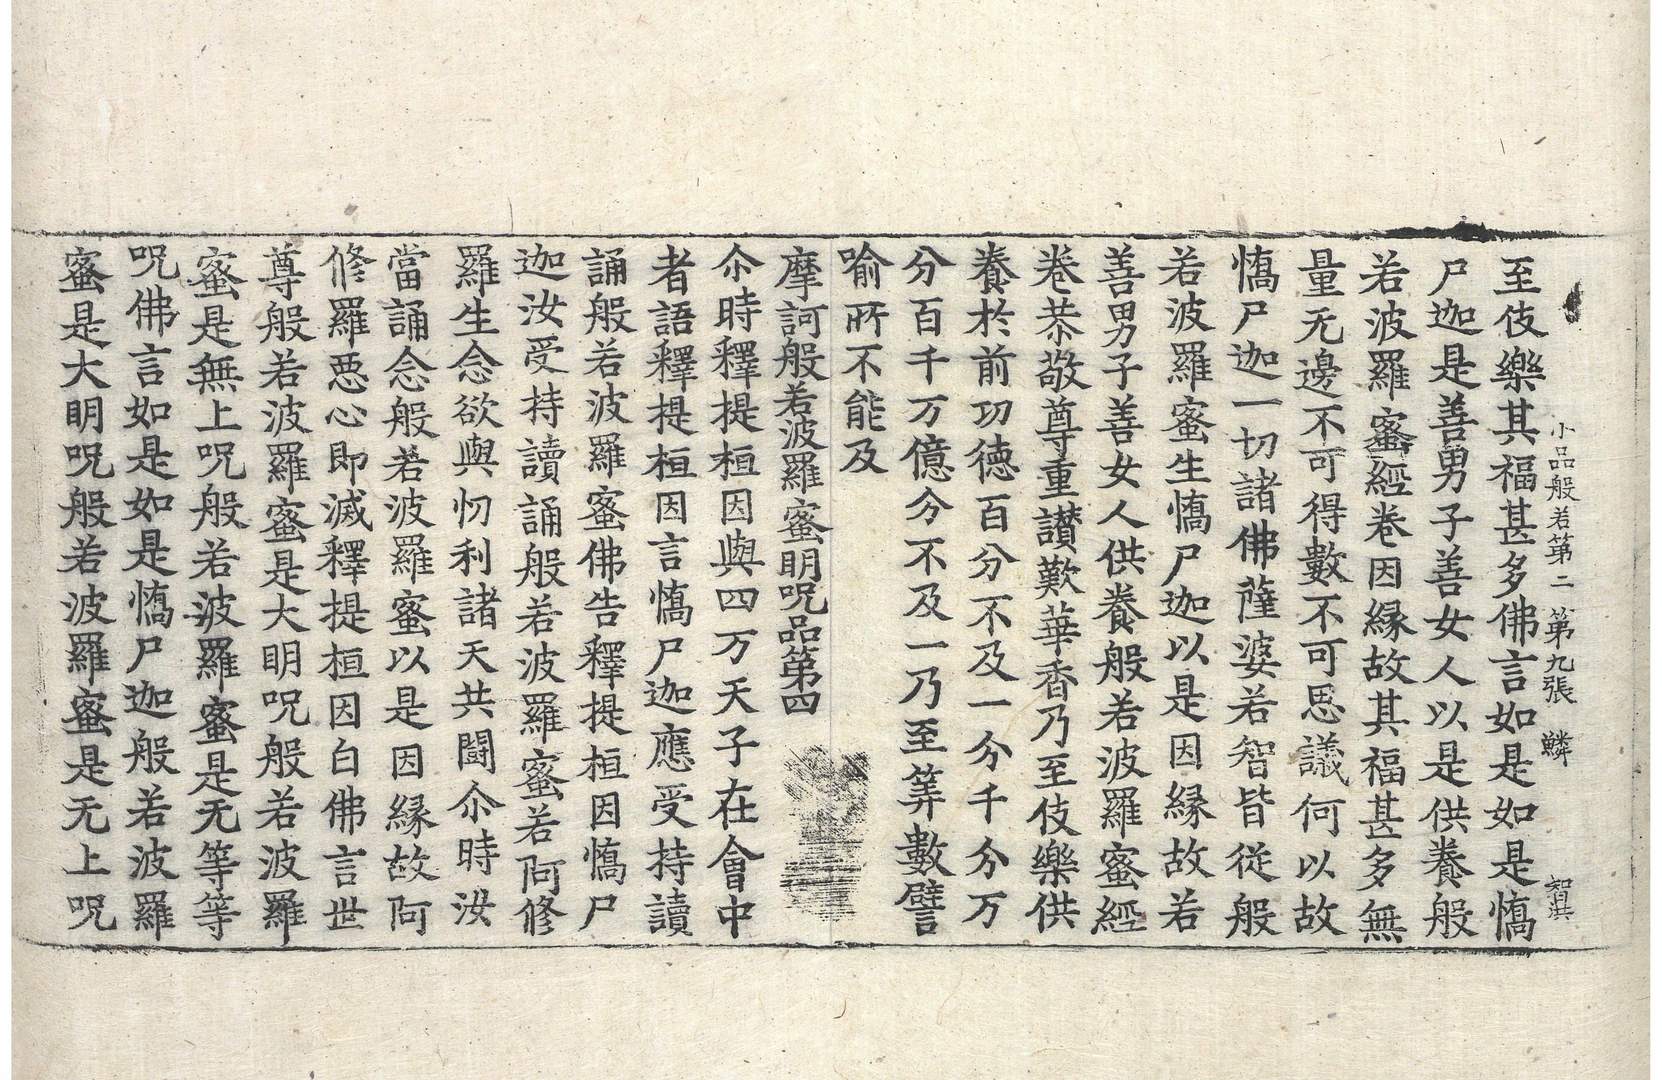 小品般若第二 第九張 鱗 智洪
至伎樂其福甚多佛言如是如是憍
尸迦是善男子善女人以是供養般
若波羅蜜經卷因縁故其福甚多無
量无邊不可得數不可思議何以故
憍尸迦一切諸佛薩婆若智皆從般
若波羅蜜生憍尸迦以是因縁故若
善男子善女人供養般若波羅蜜經
卷恭敬尊重讃歎華香乃至伎樂供
養於前功德百分不及一分千分万
分百千万億分不及一乃至筭數譬
喻所不能及
摩訶般若波羅蜜明呪品第四
尒時釋提桓因與四万天子在會中
者語釋提桓因言憍尸迦應受持讀
誦般若波羅蜜佛告釋提桓因憍尸
迦汝受持讀誦般若波羅蜜若阿修
羅生念欲與忉利諸天共鬪尒時汝
當誦念般若波羅蜜以是因縁故阿
修羅惡心即滅釋提桓因白佛言世
尊般若波羅蜜是大明呪般若波羅
蜜是無上呪般若波羅蜜是无等等
呪佛言如是如是憍尸迦般若波羅
蜜是大明呪般若波羅蜜是无上呪